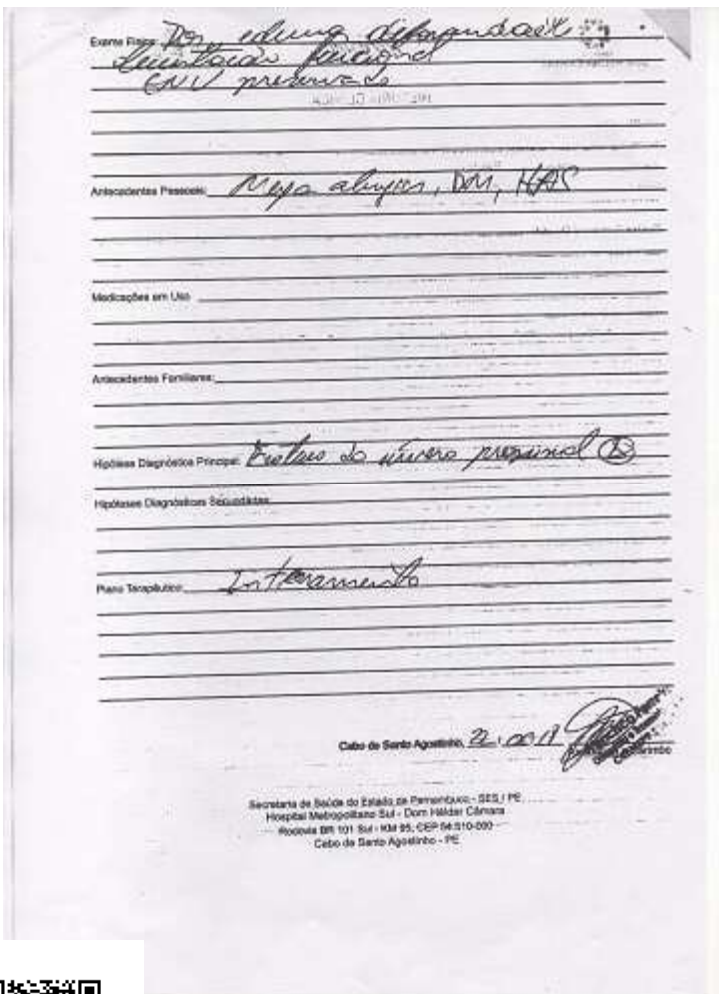 Exame Físico: Dor, edema deformidade
limitação funcional
ENV preservado
Antecedentes Pessoais: Nega alergias, DM, HAS
Medicações em Uso
Antecedentes Familiares:
Hipótese Diagnóstica Principal: Fratura do úmero proximal
Hipóteses Diagnósticas Secundárias
Plano Terapêutico: Internamento
Cabo de Santo Agostinho, 22
Secretaria de Saúde do Estado de Pernambuco - SES / PE
Hospital Metropolitano Sul - Dom Hélder Câmara
Rodovia BR 101 Sul - KM 95, CEP 54.510-000
Cabo de Santo Agostinho - PE